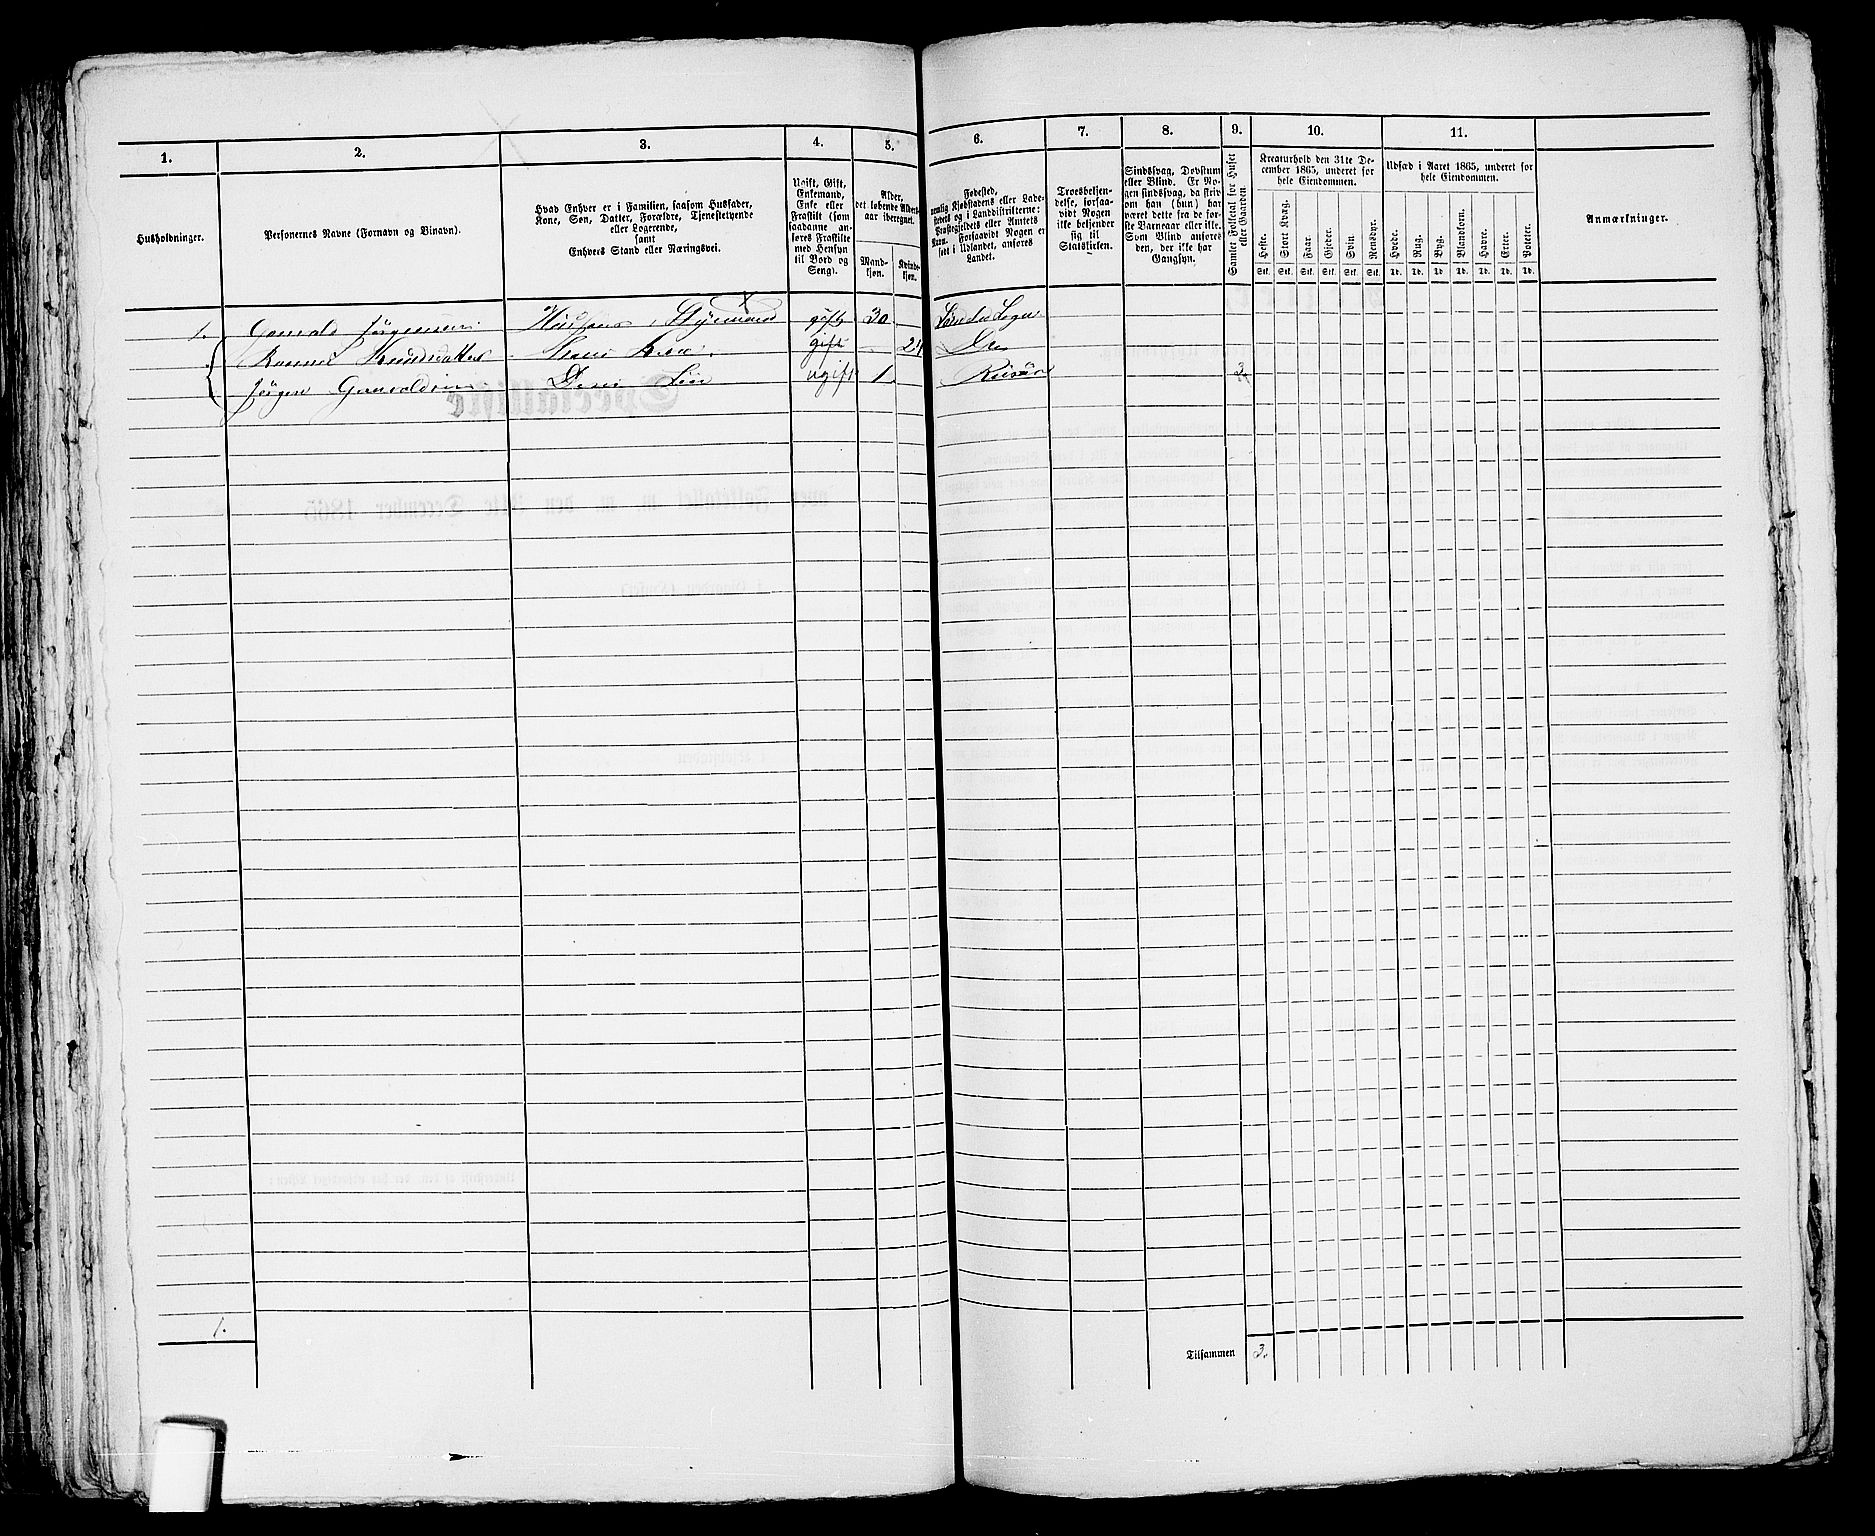 1. 2. 3. 4. 5. 6. 7. 8. 9. 10. 11.
Husholdninger.
Personernes Navne (Fornavn og Binavn).
Hvad Enhver er i Familien, saasom Husfader,
Kone, Søn, Datter, Forældre, Tjenestetyende
eller Logerende,
samt
Enhvers Stand eller Næringsvei.
Ugift, Gift,
Enkemand,
Enke eller
Fraskilt (som
saadanne an-
føres Fraskilte
med Hensyn
til Bord og
Seng).
Alder,
det løbende Alders-
aar iberegnet.
Mand-
kjøn.
Kvinde-
kjøn.
Fødested,
nemlig Kjøbstadens eller Lade-
stedets og i Landdistrikterne:
Præstegjeldets eller Amtets
Navn. Forsaavidt Nogen er
født i Udlandet, anføres
Landet.
Troesbekjen-
delse, forsaa-
vidt Nogen
ikke bekjender
sig til
Statskirken.
Sindssvag, Døvstum
eller Blind. Er No-
gen sindssvag, da skriv
om han (hun) har
været dette fra de før-
ste Barneaar eller ikke.
Som Blind anføres
den, der ikke har
Gangsyn.
Samlet Folketal for Huset
eller Gaarden.
Kreaturhold den 31te De-
cember 1865, underet for
hele Eiendommen.
Heste. Stort Kvæg. Faar. Gjeder. Svin. Rensdyr.
Stk. Stk. Stk. Stk. Stk. Stk.
Udsæd i Aaret 1865, underet for
hele Eiendommen.
Hvede. Rug. Byg. Blandkorn. Havre. Erter. Poteter.
Td. Td. Td. Td. Td. Td. Td.
Anmærkninger.
1. Jørgensen Styrmand gift 30
Knudsdatter gift
Jørgen ugift 1 Risør 3
1.
Tilsammen 3.